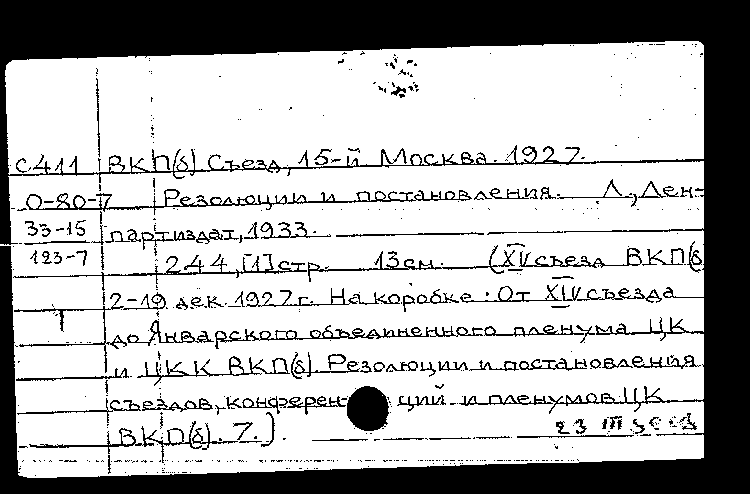 с.411 ВКП(б) Съезд, 15-й Москва. 1927.
0-80-7 Резолюции и постановления. Л., Лен-
33-15 партиздат, 1933.
123-7 244, [1] стр. 13 см. (XV съезд ВКП(б)
2-19 дек. 1927 г. На коробке: От XIV съезда
до Январского объединенного пленума ЦК
и ЦКК ВКП(б). Резолюции и постановления
съездов, конференций и пленумов ЦК
ВКП(б). 7.).
23 III